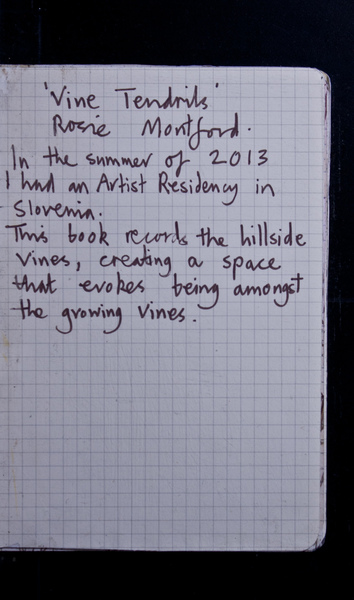 'Vine Tendrils'
Rosie Montford.
In the summer of 2013
I had an Artist Residency in
Slovenia.
This book records the hillside
vines, creating a space
that evokes being amongst
the growing vines.